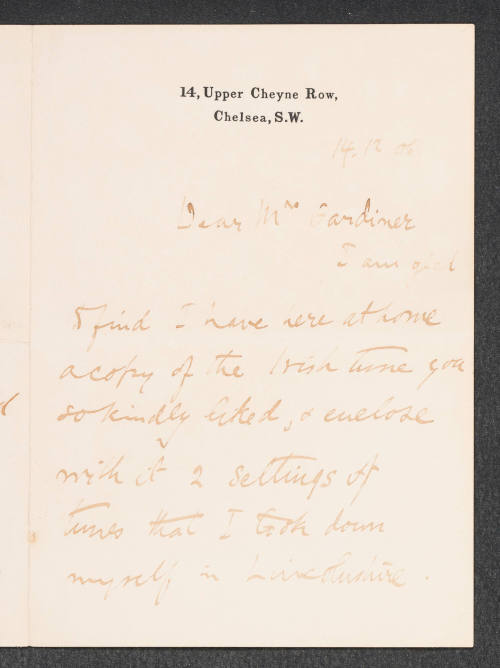 14, Upper Cheyne Row,
Chelsea, S.W.
14.12.06
Dear Mrs Gardiner
I am glad
to find I have here at home
a copy of the Irish tune you
so kindly liked, & enclose
with it 2 settings of
tunes that I took down
myself in Lincolnshire.